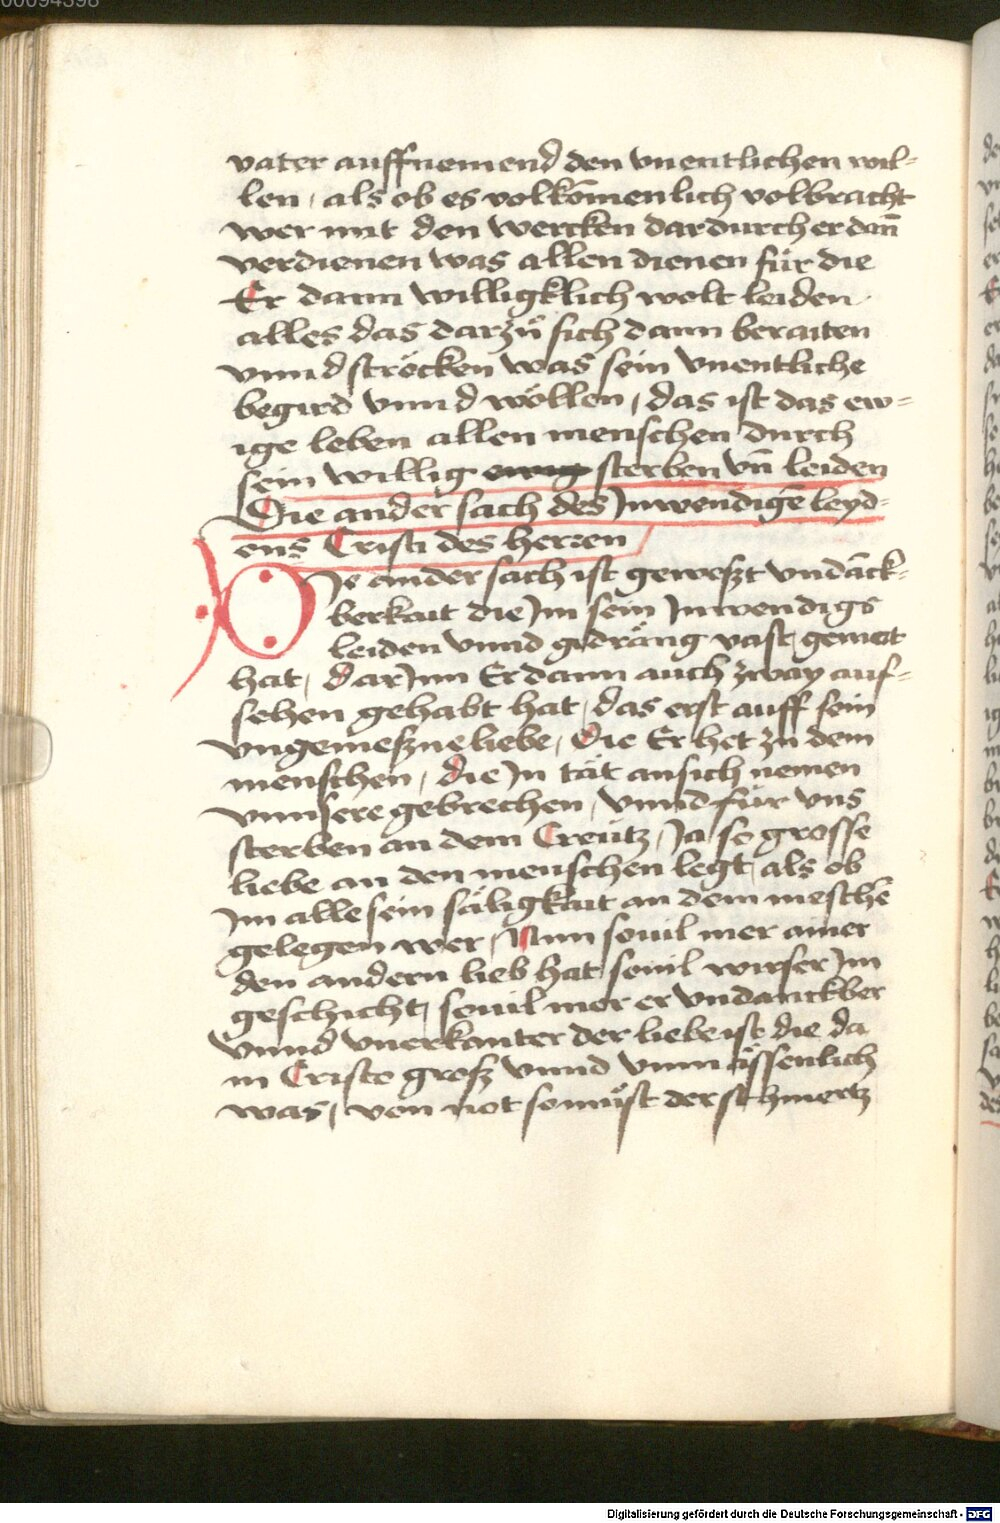 00094398
vater auffnemend den vnentlichen wil-
len, als ob es volkōmenlich volbracht
wer mit den wercken dardurch er dañ
verdienen was allen dienen für die
Er dann willigklich wolt leiden
alles das darzů sich dann beraiten
vnnd ströcken was sein vnentliche
begird vnnd wöllen, das ist das ew-
ige leben allen menschen durch
sein willig ewig sterben vn̄ leiden
Die ander sach des Jnwendigē leyd-
ens Cristi des herzen
Die ander sach ist geweszt vndāck-
berkait die Jm sein Jnwendigs
leiden vnnd gedräng vast gemert
hat, darJnn Er dann auch zway auf-
sehen gehabt hat, das erst auff sein
vngemeszne liebe, Die Er het zu dem
menschen, die Jn tät ansich nemen
vnnsere gebrechen, vnnd für vns
sterben an dem Creütz, Ja so grosse
liebe an den menschen legt, als ob
Jm alle sein säligkait an dem meschē
gelegen wer, Nun souil mer ainer
den andern lieb hat souil wirser Jm
geschicht, souil mer er vndanckber
vnnd vnerkanter der liebe ist die da
in Cristo grosz vnnd vnmässenlich
was, von not so můst der schmertz
Digitalisierung gefördert durch die Deutsche Forschungsgemeinschaft - DFG